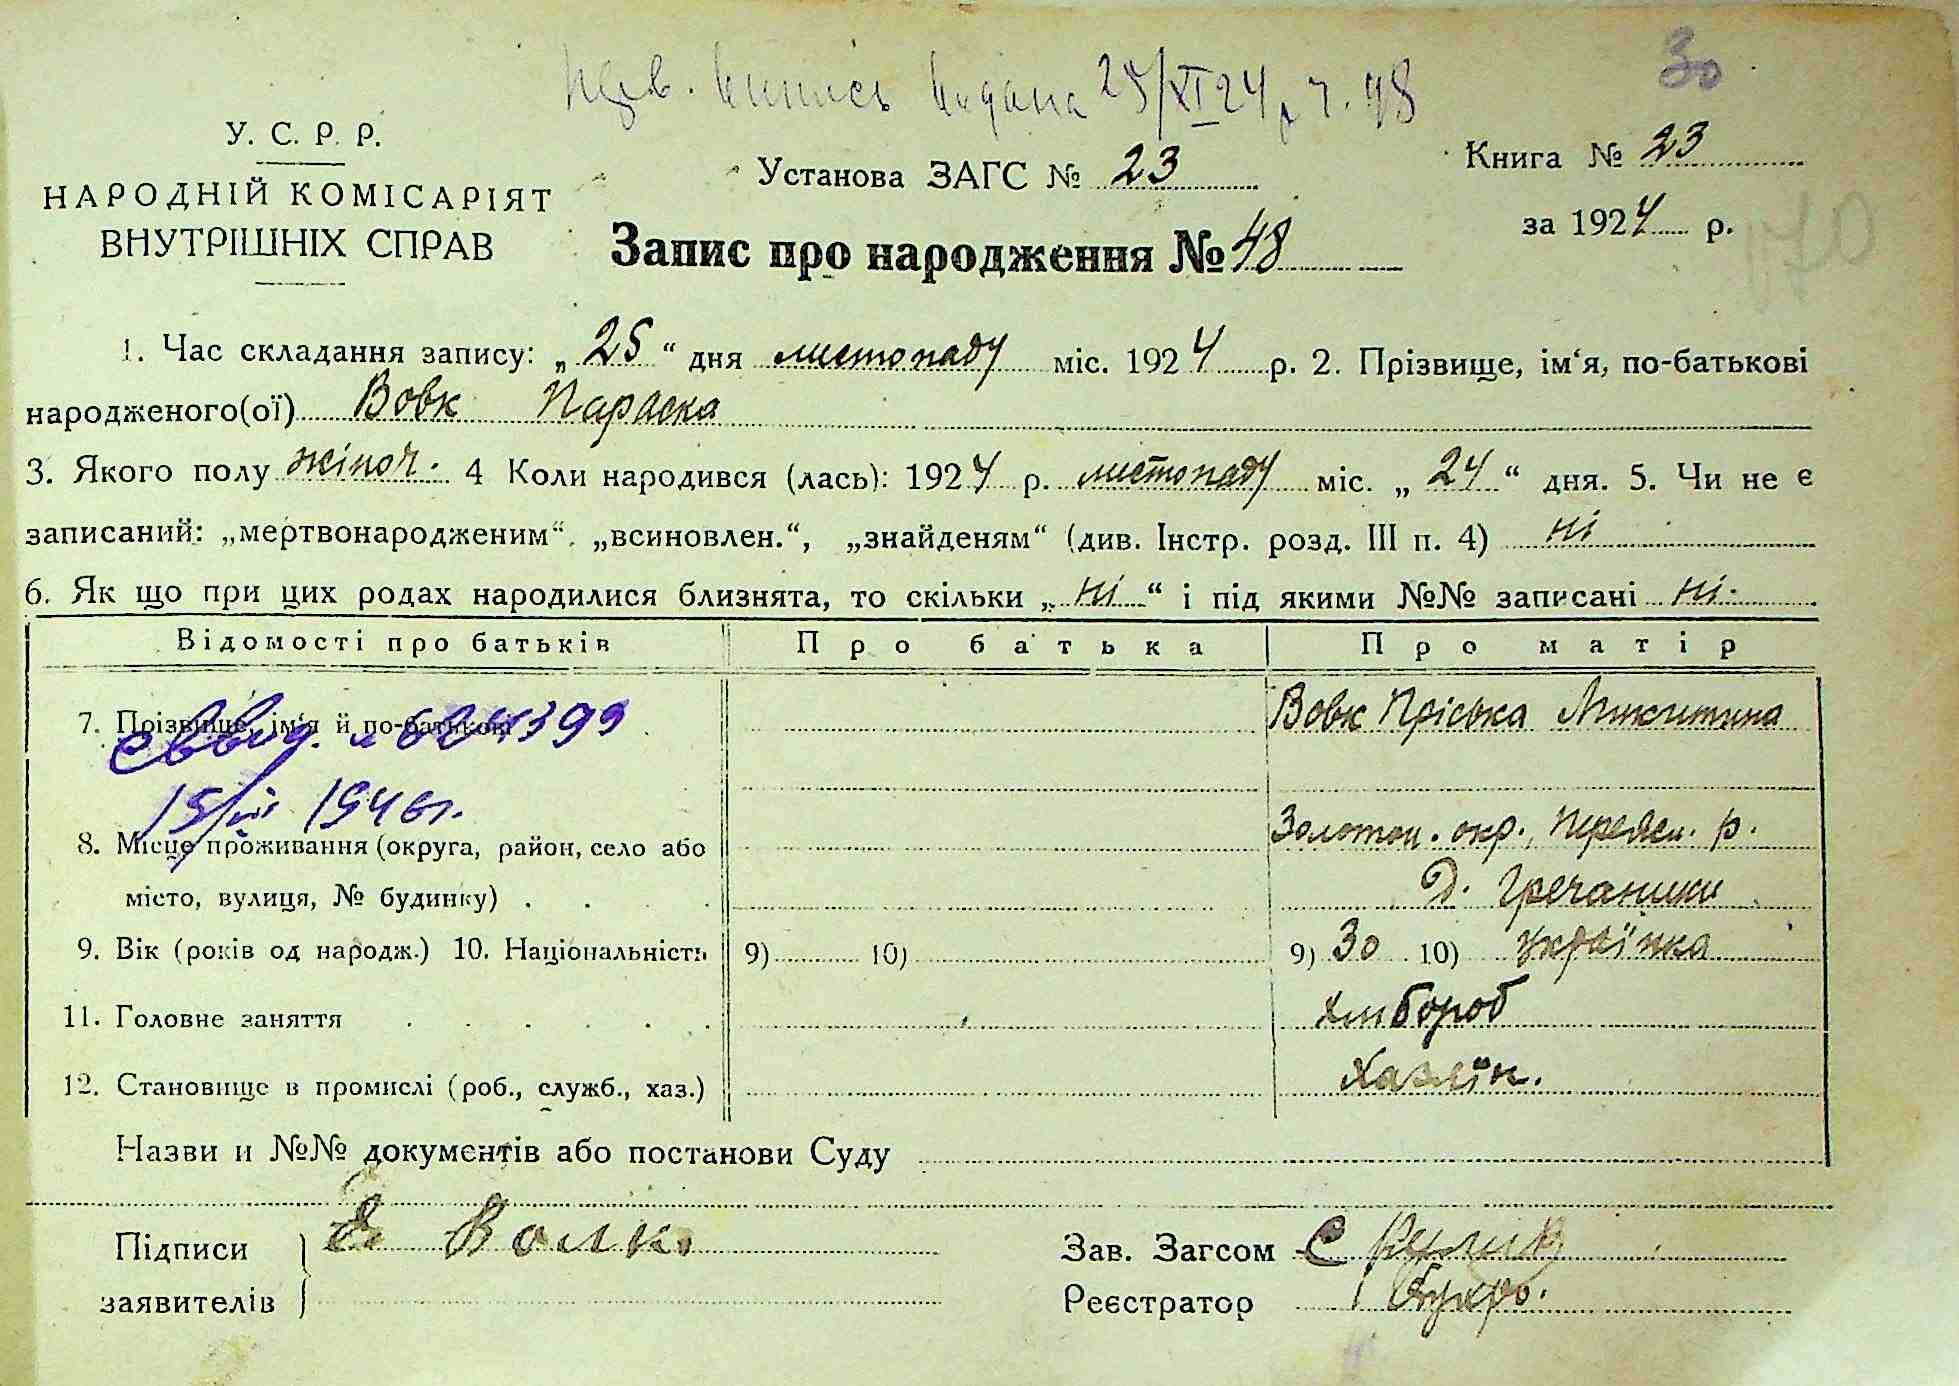 30
выпись выдана 25/XI 24 р ч. 48
У. С. Р. Р.
НАРОДНІЙ КОМІСАРІЯТ
ВНУТРІШНІХ СПРАВ
Установа ЗАГС № 23
Книга № 23
за 1924 р.
170
Запис про народження № 48
1. Час складання запису: „25“ дня листопаду міс. 1924 р. 2. Прізвище, ім‘я, по-батькові
народженого(ої) Вовк Параска
3. Якого полу жіноч. 4 Коли народився (лась): 1924 р. листопаду міс. „24“ дня. 5. Чи не є
записаний: „мертвонародженим“, „всиновлен.“, „знайденям“ (див. Інстр. розд. III п. 4) ні
6. Як що при цих родах народилися близнята, то скільки „ні“ і під якими №№ записані ні.
Відомості про батьків Про батька Про матір
7. Прізвище, ім‘я й по-батькові Вовк Пріська Микитина
604399
15/III 1946г.
Золотон. окр., Переясл. р.
8. Місце проживання (округа, район, село або
місто, вулиця, № будинку) . . . . Д. Гречаники
9. Вік (років од народж.) 10. Національність 9) 10) 9) 30 10) українка
11. Головне заняття . . . . . . хлібороб
12. Становище в промислі (роб., служб., хаз.) Хазяїн.
Назви и №№ документів або постанови Суду
Підписи Волк Зав. Загсом С Кулик
заявителів Реєстратор